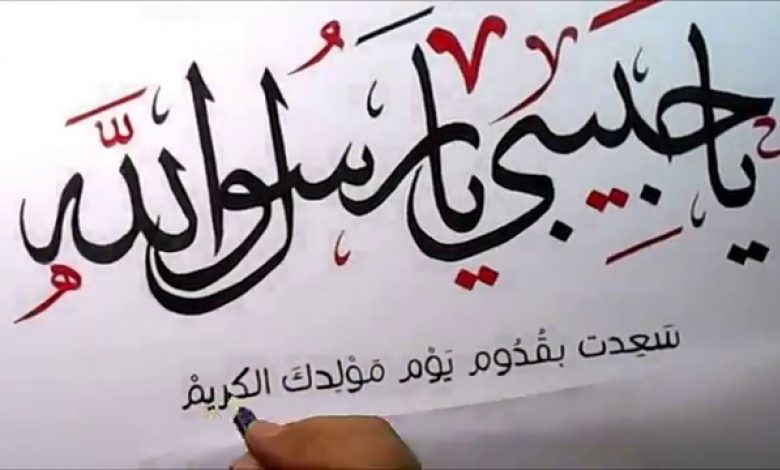 يا حبيبي يا رسول الله
سَعِدت بقُدُوم يَوْم مَوْلِدكَ الكريمْ